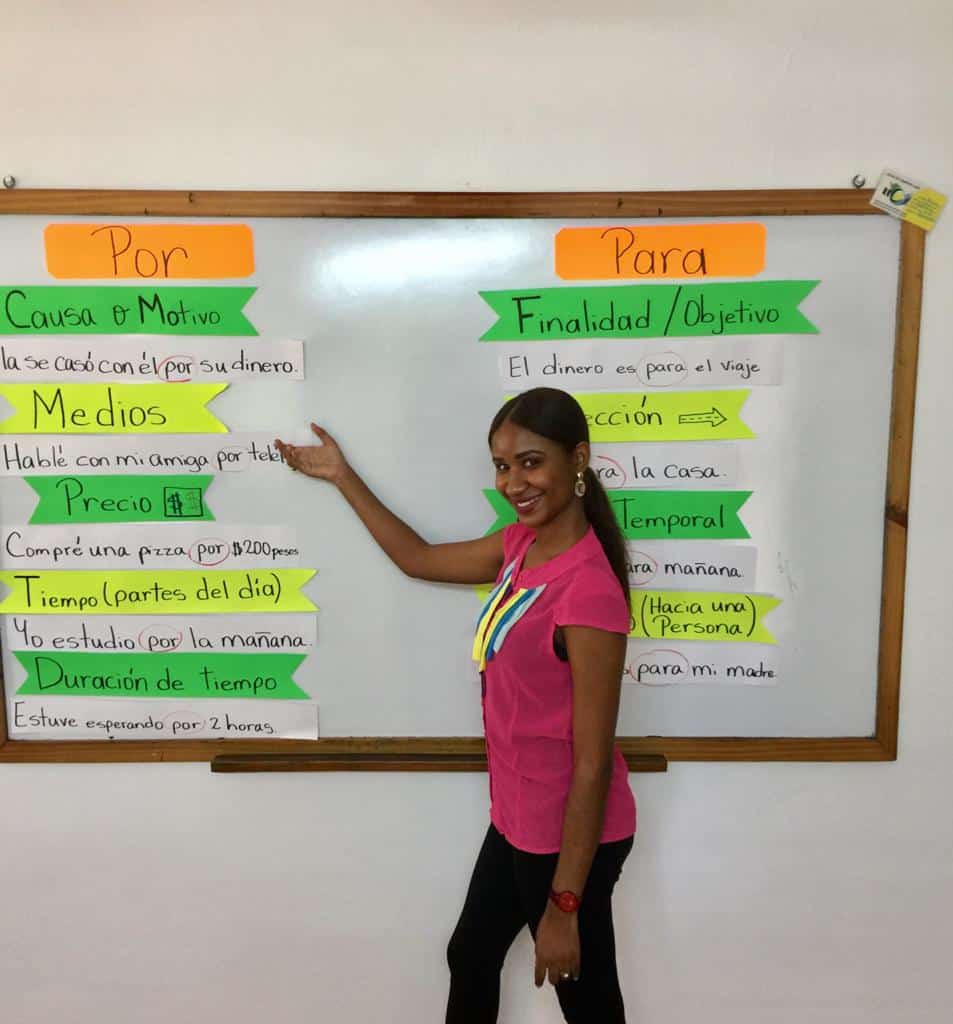 Por
Causa o Motivo
la se casó con él por su dinero.
Medios
Hablé con mi amiga por
Precio $$
Compré una pizza por $200 pesos
Tiempo (partes del día)
Yo estudio por la mañana.
Duración de tiempo
Estuve esperando por 2 horas.
Para
Finalidad / Objetivo
El dinero es para el viaje
ección
ra la casa.
Temporal
ara mañana.
(Hacia una
Persona)
para mi madre.